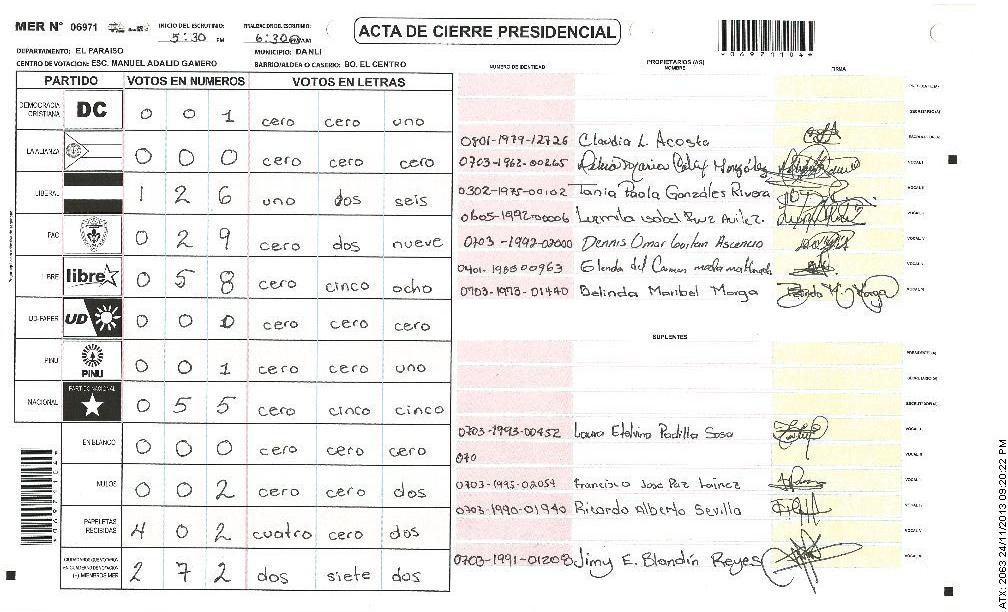 MER N° 06971
INICIO DEL ESCRUTINIO: 5:30 PM
FINALIZACION DEL ESCRUTINIO: 6:30 PM
ACTA DE CIERRE PRESIDENCIAL
*06971104*
DEPARTAMENTO: EL PARAISO
MUNICIPIO: DANLI
CENTRO DE VOTACION: ESC. MANUEL ADALID GAMERO
BARRIO/ALDEA O CASERIO: BO. EL CENTRO
PARTIDO VOTOS EN NUMEROS VOTOS EN LETRAS
DEMOCRACIA CRISTIANA DC 0 0 1 cero cero uno
LA ALIANZA 0 0 0 cero cero cero
LIBERAL 1 2 6 uno dos seis
PAC 0 2 9 cero dos nueve
LIBRE libre 0 5 8 cero cinco ocho
UD-FAPER UD 0 0 0 cero cero cero
PINU PINU 0 0 1 cero cero uno
NACIONAL PARTIDO NACIONAL 0 5 5 cero cinco cinco
EN BLANCO 0 0 0 cero cero cero
NULOS 0 0 2 cero cero dos
PAPELETAS RECIBIDAS 4 0 2 cuatro cero dos
2 7 2 dos siete dos
NUMERO DE IDENTIDAD
PROPIETARIOS (AS)
NOMBRE
FIRMA
0801-1979-12726 Claudia L. Acosta
0703-1962-00265
0302-1975-00102 Tania Paola Gonzáles Rivera
0605-1992-00006
0703-1992-02000 Dennis Omar Ascencio
Glenda del Carmen
0703-1973-01440 Belinda Maribel Marga
SUPLENTES
0703-1993-00452 Laura Etelvina Padilla Sosa
070
0703-1995-02054 Francisco Jose Paz Lainez
0703-1990-01940 Ricardo Alberto Sevilla
0703-1991-01208 Jimy E. Blandín Reyes
ATX: 2063 24/11/2013 09:20:22 PM